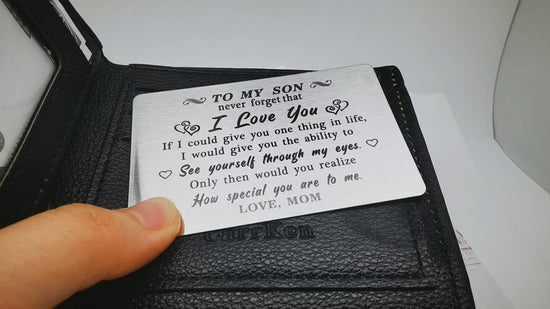 TO MY SON
never forget that
I Love You
If I could give you one thing in life,
I would give you the ability to
See yourself through my eyes.
Only then would you realize
How special you are to me.
LOVE, MOM